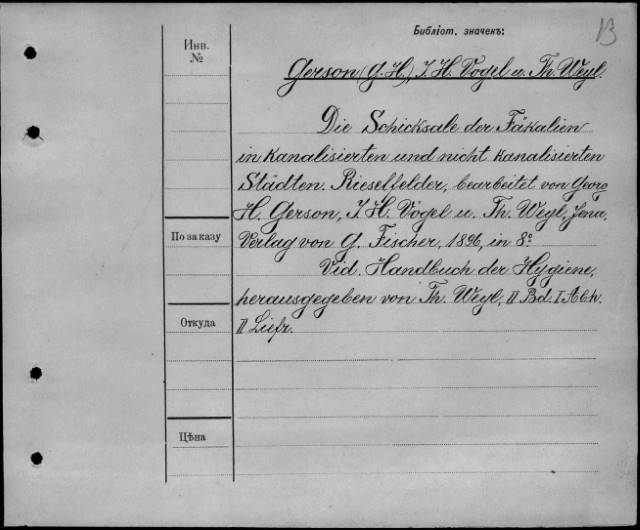 Библіот. значенъ:
B
Инв.
№
Gerson (G. H.), J. H. Vogel u. Th. Weyl.
Die Schicksale der Fäkalien
in kanalisierten und nicht kanalisierten
Städten. Rieselfelder, bearbeitet von Georg
H. Gerson, J. H. Vogel u. Th. Weyl, Jena,
По заказу
Verlag von G. Fischer, 1896, in 8°
Vid. Handbuch der Hygiene,
herausgegeben von Th. Weyl, II Bd. I Abth.
Откуда
II Liefr.
Цѣна